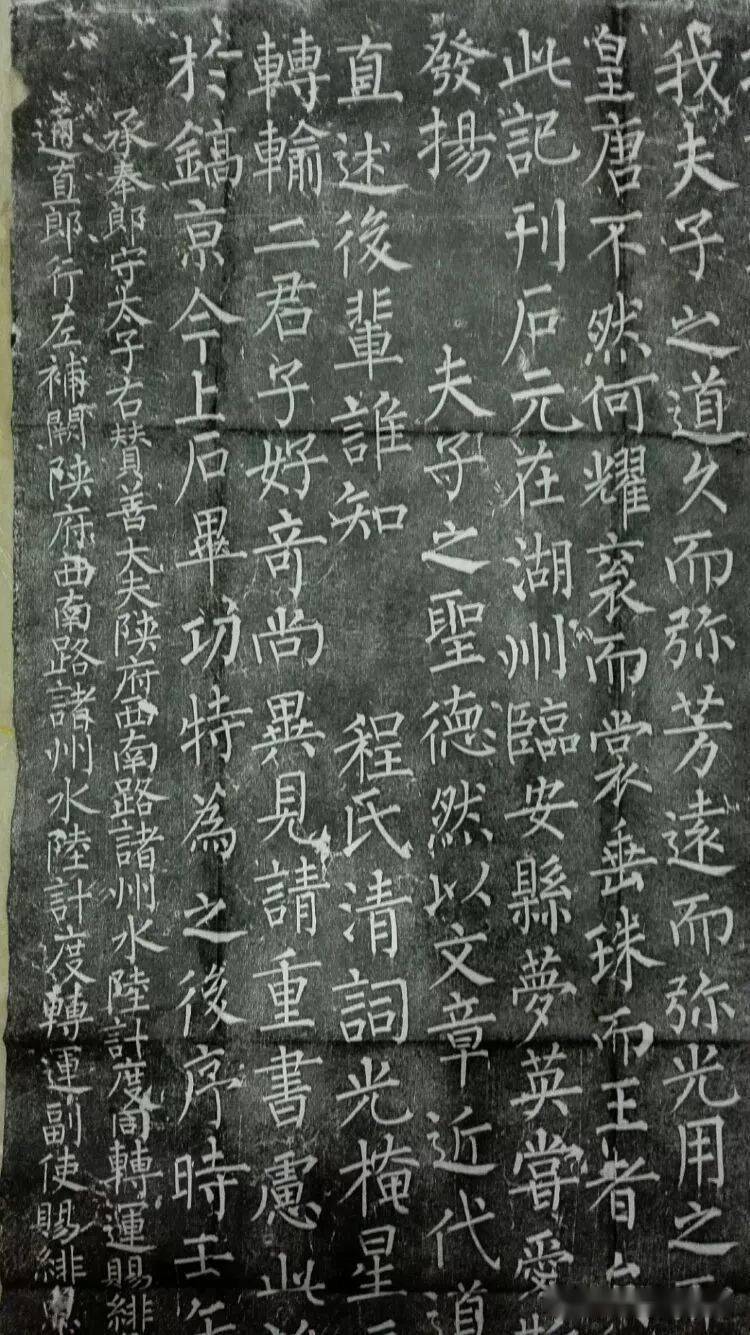 我夫子之道久而弥芳遠而弥光用之
皇唐不然何耀衮而裳垂珠而王者
此記刊石元在湖州臨安縣夢英嘗愛
發揚　夫子之聖德然以文章近代道
直述後輩誰知　程氏清詞光掩星
轉輸二君子好竒尚異見請重書慮此
於鎬京今上石畢功特為之後序時壬午
承奉郎守太子右賛善大夫陝府西南路諸州水陸計度同轉運賜緋
通直郎行左補闕陝府西南路諸州水陸計度轉運副使賜緋